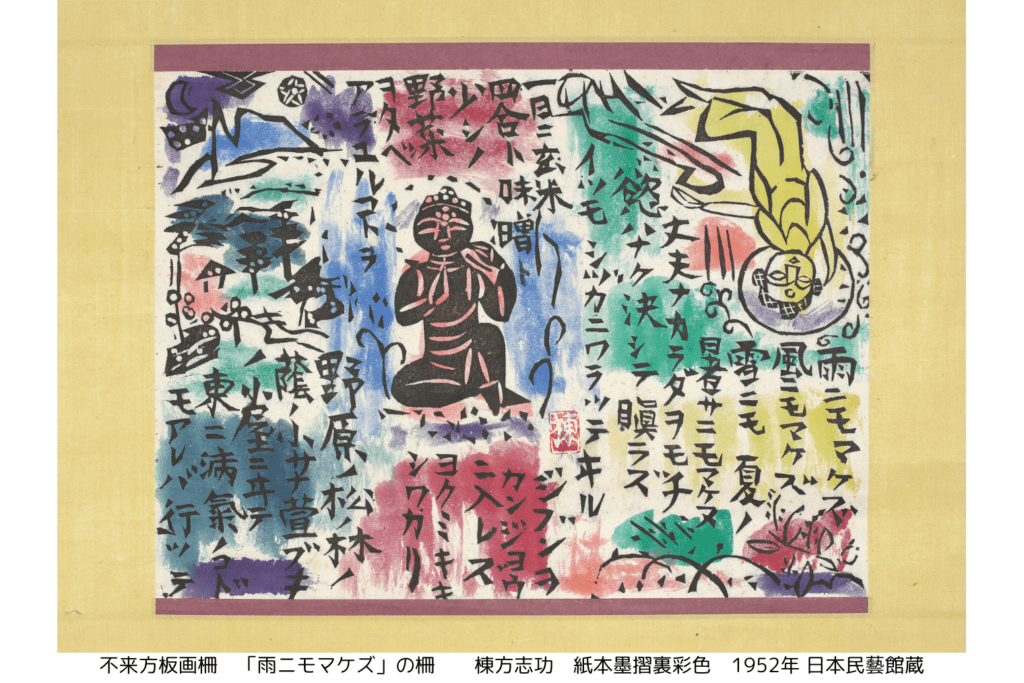 雨ニモマケズ
風ニモマケズ
雪ニモ夏ノ
暑サニモマケヌ
丈夫ナカラダヲモチ
慾ハナク決シテ瞋ラズ
イツモシヅカニワラッテヰル
一日ニ玄米
四合ト味噌ト
少シノ
野菜
ヲタベ
アラユルコトヲ
ジブンヲ
カンジョウ
ニ入レズ
ヨクミキキ
シワカリ
野原ノ松ノ林ノ
蔭ノ小サナ萱ブキ
ノ小屋ニヰテ
東ニ病氣ノコド
モアレバ行ッテ
棟
不来方板画柵　「雨ニモマケズ」の柵　　棟方志功　紙本墨摺裏彩色　1952年 日本民藝館蔵